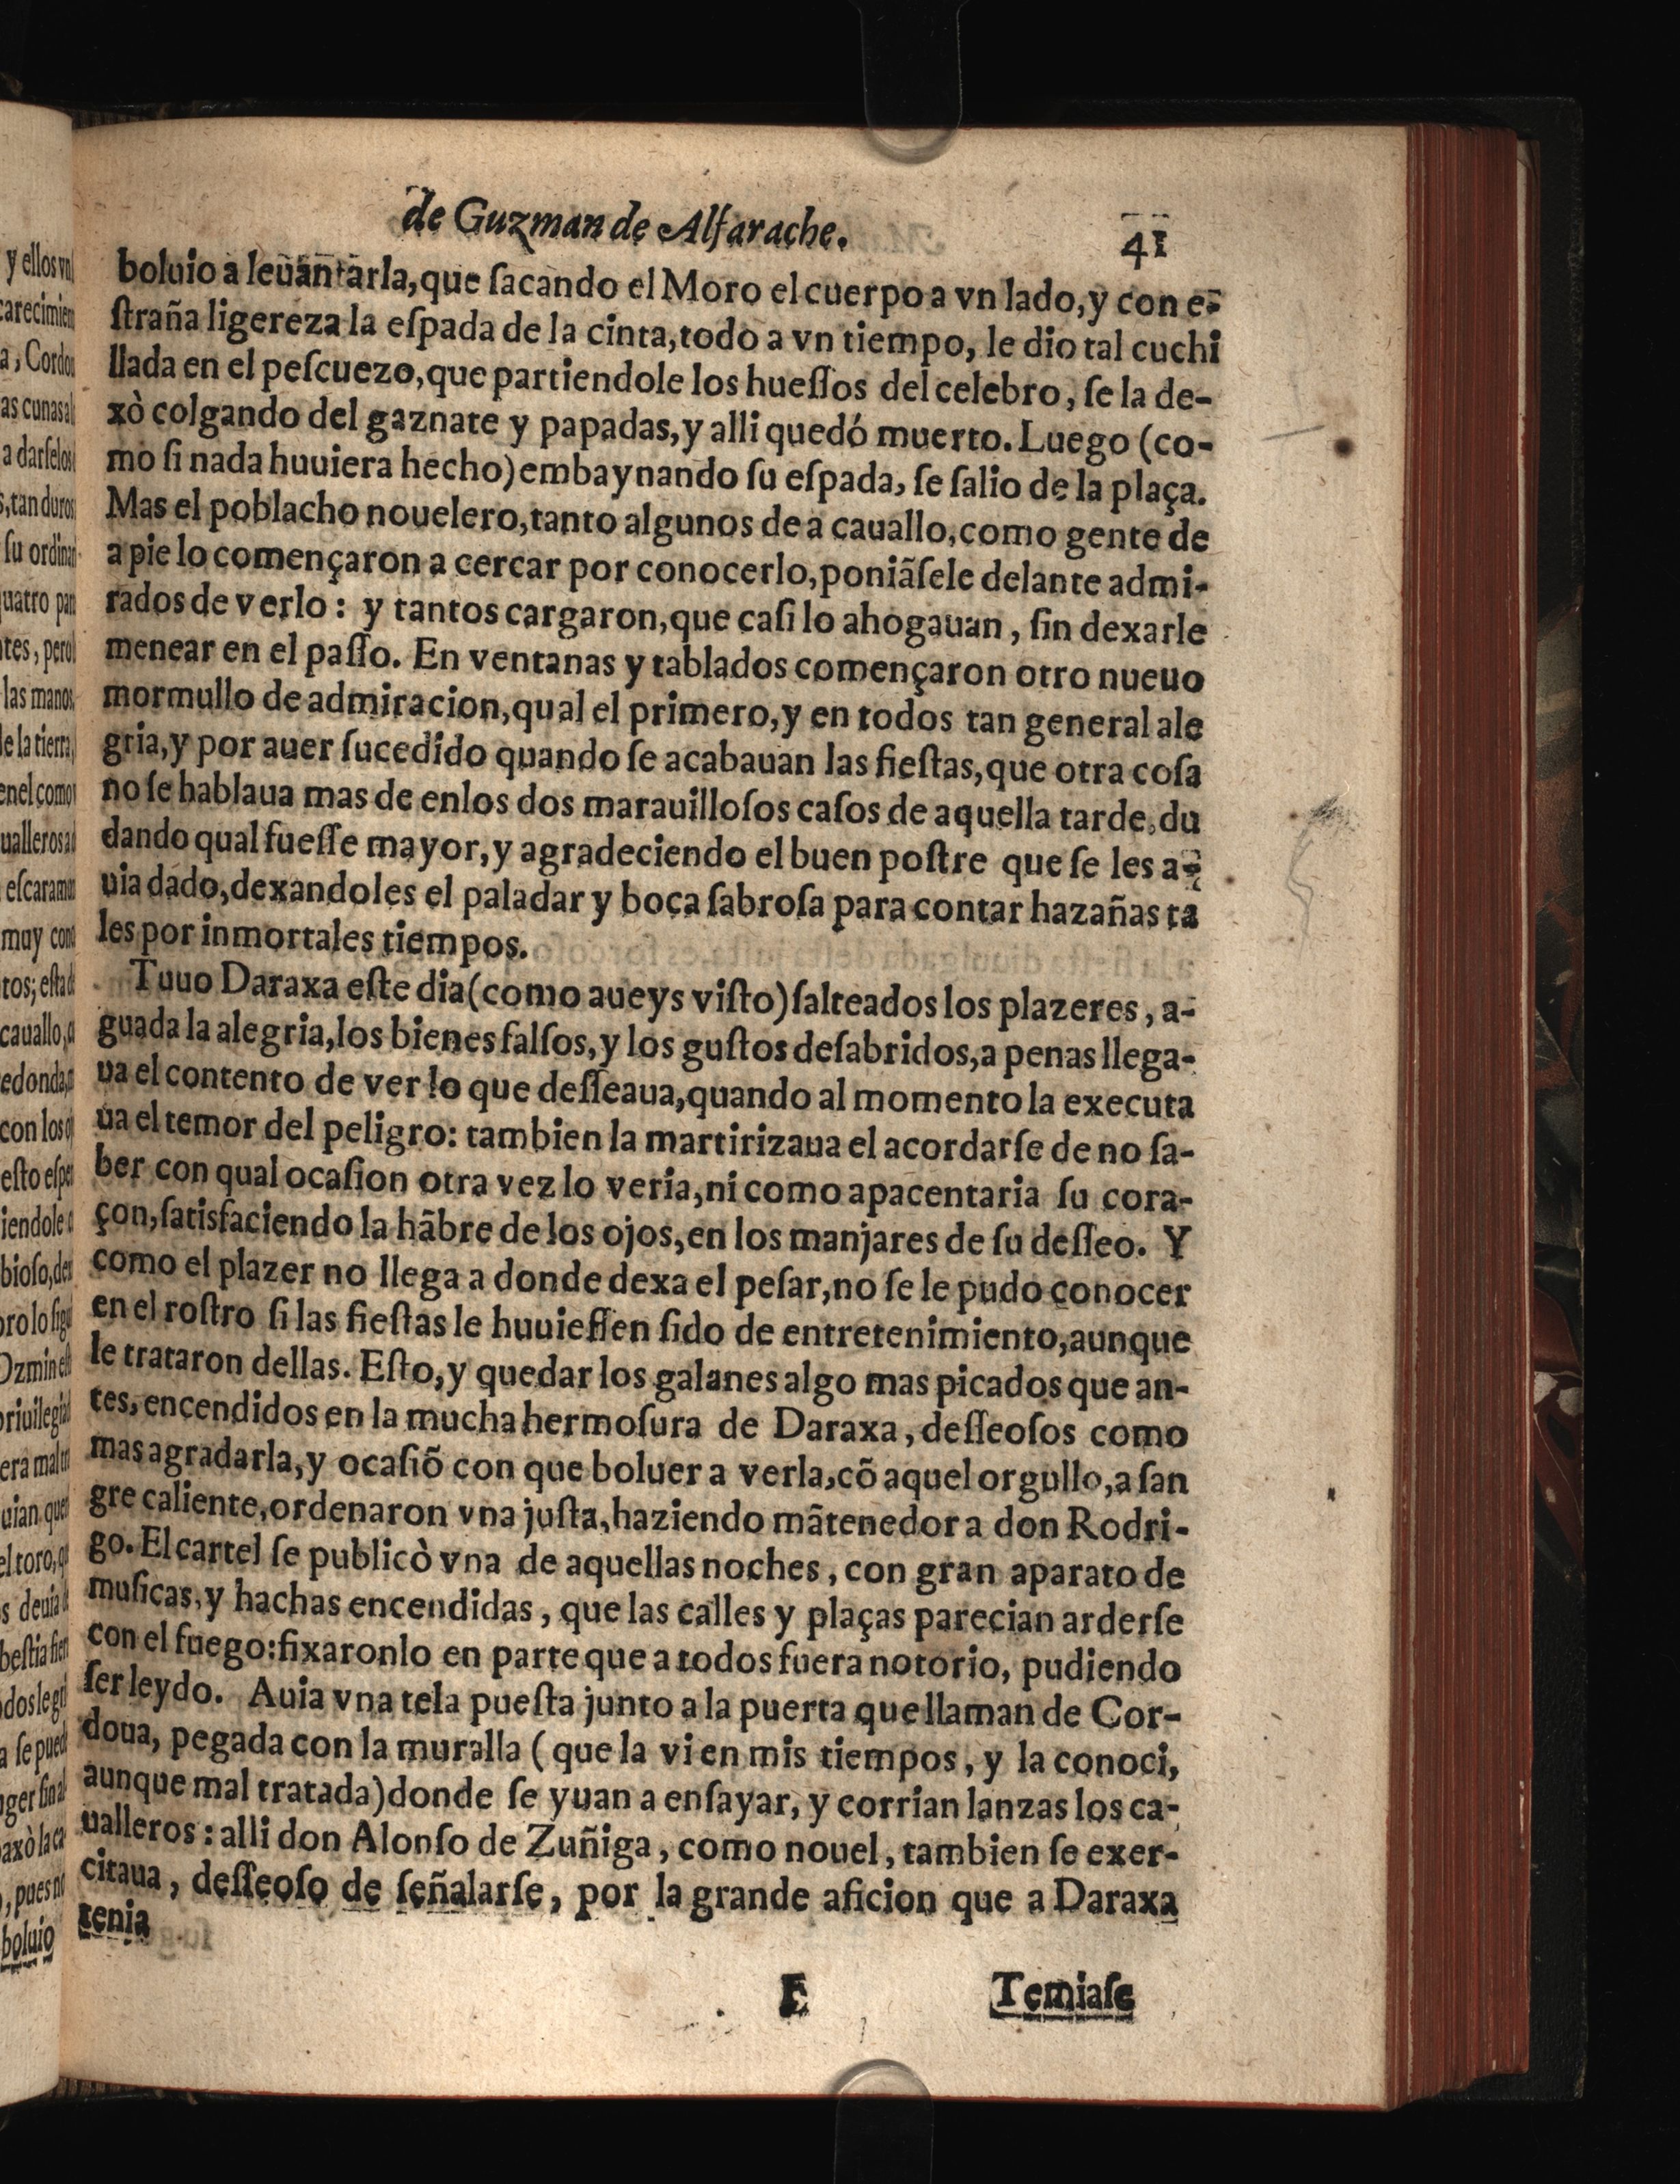 de Guzman de Alfarache.
41
boluio a leuantarla, que ſacando el Moro el cuerpo a vn lado, y con e-
ſtraña ligereza la eſpada de la cinta, todo a vn tiempo, le dio tal cuchi
llada en el peſcuezo, que partiendole los hueſſos del celebro, ſe la de-
xò colgando del gaznate y papadas, y alli quedó muerto. Luego (co-
mo ſi nada huuiera hecho) embaynando ſu eſpada, ſe ſalio de la plaça.
Mas el poblacho nouelero, tanto algunos de a cauallo, como gente de
a pie lo començaron a cercar por conocerlo, poniãſele delante admi-
rados de verlo: y tantos cargaron, que caſi lo ahogauan, ſin dexarle
menear en el paſſo. En ventanas y tablados començaron otro nueuo
mormullo de admiracion, qual el primero, y en todos tan general ale
gria, y por auer ſucedido quando ſe acabauan las fieſtas, que otra coſa
no ſe hablaua mas de enlos dos marauilloſos caſos de aquella tarde, du
dando qual fueſſe mayor, y agradeciendo el buen poſtre que ſe les a-
uia dado, dexandoles el paladar y boca ſabroſa para contar hazañas ta
les por inmortales tiempos.
Tuuo Daraxa eſte dia (como aueys viſto) ſalteados los plazeres, a-
guada la alegria, los bienes falſos, y los guſtos deſabridos, a penas llega-
ua el contento de ver lo que deſſeaua, quando al momento la executa
ua el temor del peligro: tambien la martirizaua el acordarſe de no ſa-
ber con qual ocaſion otra vez lo veria, ni como apacentaria ſu cora-
çon, ſatisfaciendo la hãbre de los ojos, en los manjares de ſu deſſeo. Y
como el plazer no llega a donde dexa el peſar, no ſe le pudo conocer
en el roſtro ſi las fieſtas le huuieſſen ſido de entretenimiento, aunque
le trataron dellas. Eſto, y quedar los galanes algo mas picados que an-
tes, encendidos en la mucha hermoſura de Daraxa, deſſeoſos como
mas agradarla, y ocaſiõ con que boluer a verla, cõ aquel orgullo, a ſan
gre caliente, ordenaron vna juſta, haziendo mãtenedor a don Rodri-
go. El cartel ſe publicò vna de aquellas noches, con gran aparato de
muſicas, y hachas encendidas, que las calles y plaças parecian arderſe
con el fuego: fixaronlo en parte que a todos fuera notorio, pudiendo
ſer leydo. Auia vna tela pueſta junto a la puerta que llaman de Cor-
doua, pegada con la muralla (que la vi en mis tiempos, y la conoci,
aunque mal tratada) donde ſe yuan a enſayar, y corrian lanzas los ca-
ualleros: alli don Alonſo de Zuñiga, como nouel, tambien ſe exer-
citaua, deſſeoſo de ſeñalarſe, por la grande aficion que a Daraxa
tenia
F
Temiaſe